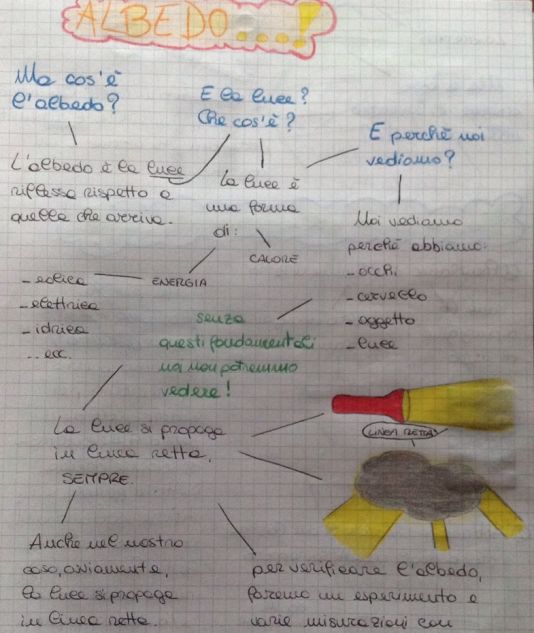 ALBEDO....!
Ma cos'è
l'albedo?
E la luce?
Che cos'è?
E perchè noi
vediamo?
L'albedo è la luce
riflessa rispetto a
quella che arriva.
La luce è
una forma
di:
CALORE
ENERGIA
- eolica
- elettrica
- idrica
.. ecc.
Noi vediamo
perchè abbiamo:
- occhi
- cervello
- oggetto
- luce
senza
questi fondamentali
noi non potremmo
vedere!
La luce si propaga
in linea retta,
SEMPRE.
LINEA RETTA
Anche nel nostro
caso, ovviamente,
la luce si propaga
in linea retta.
per verificare l'albedo,
faremo un esperimento e
varie misurazioni con